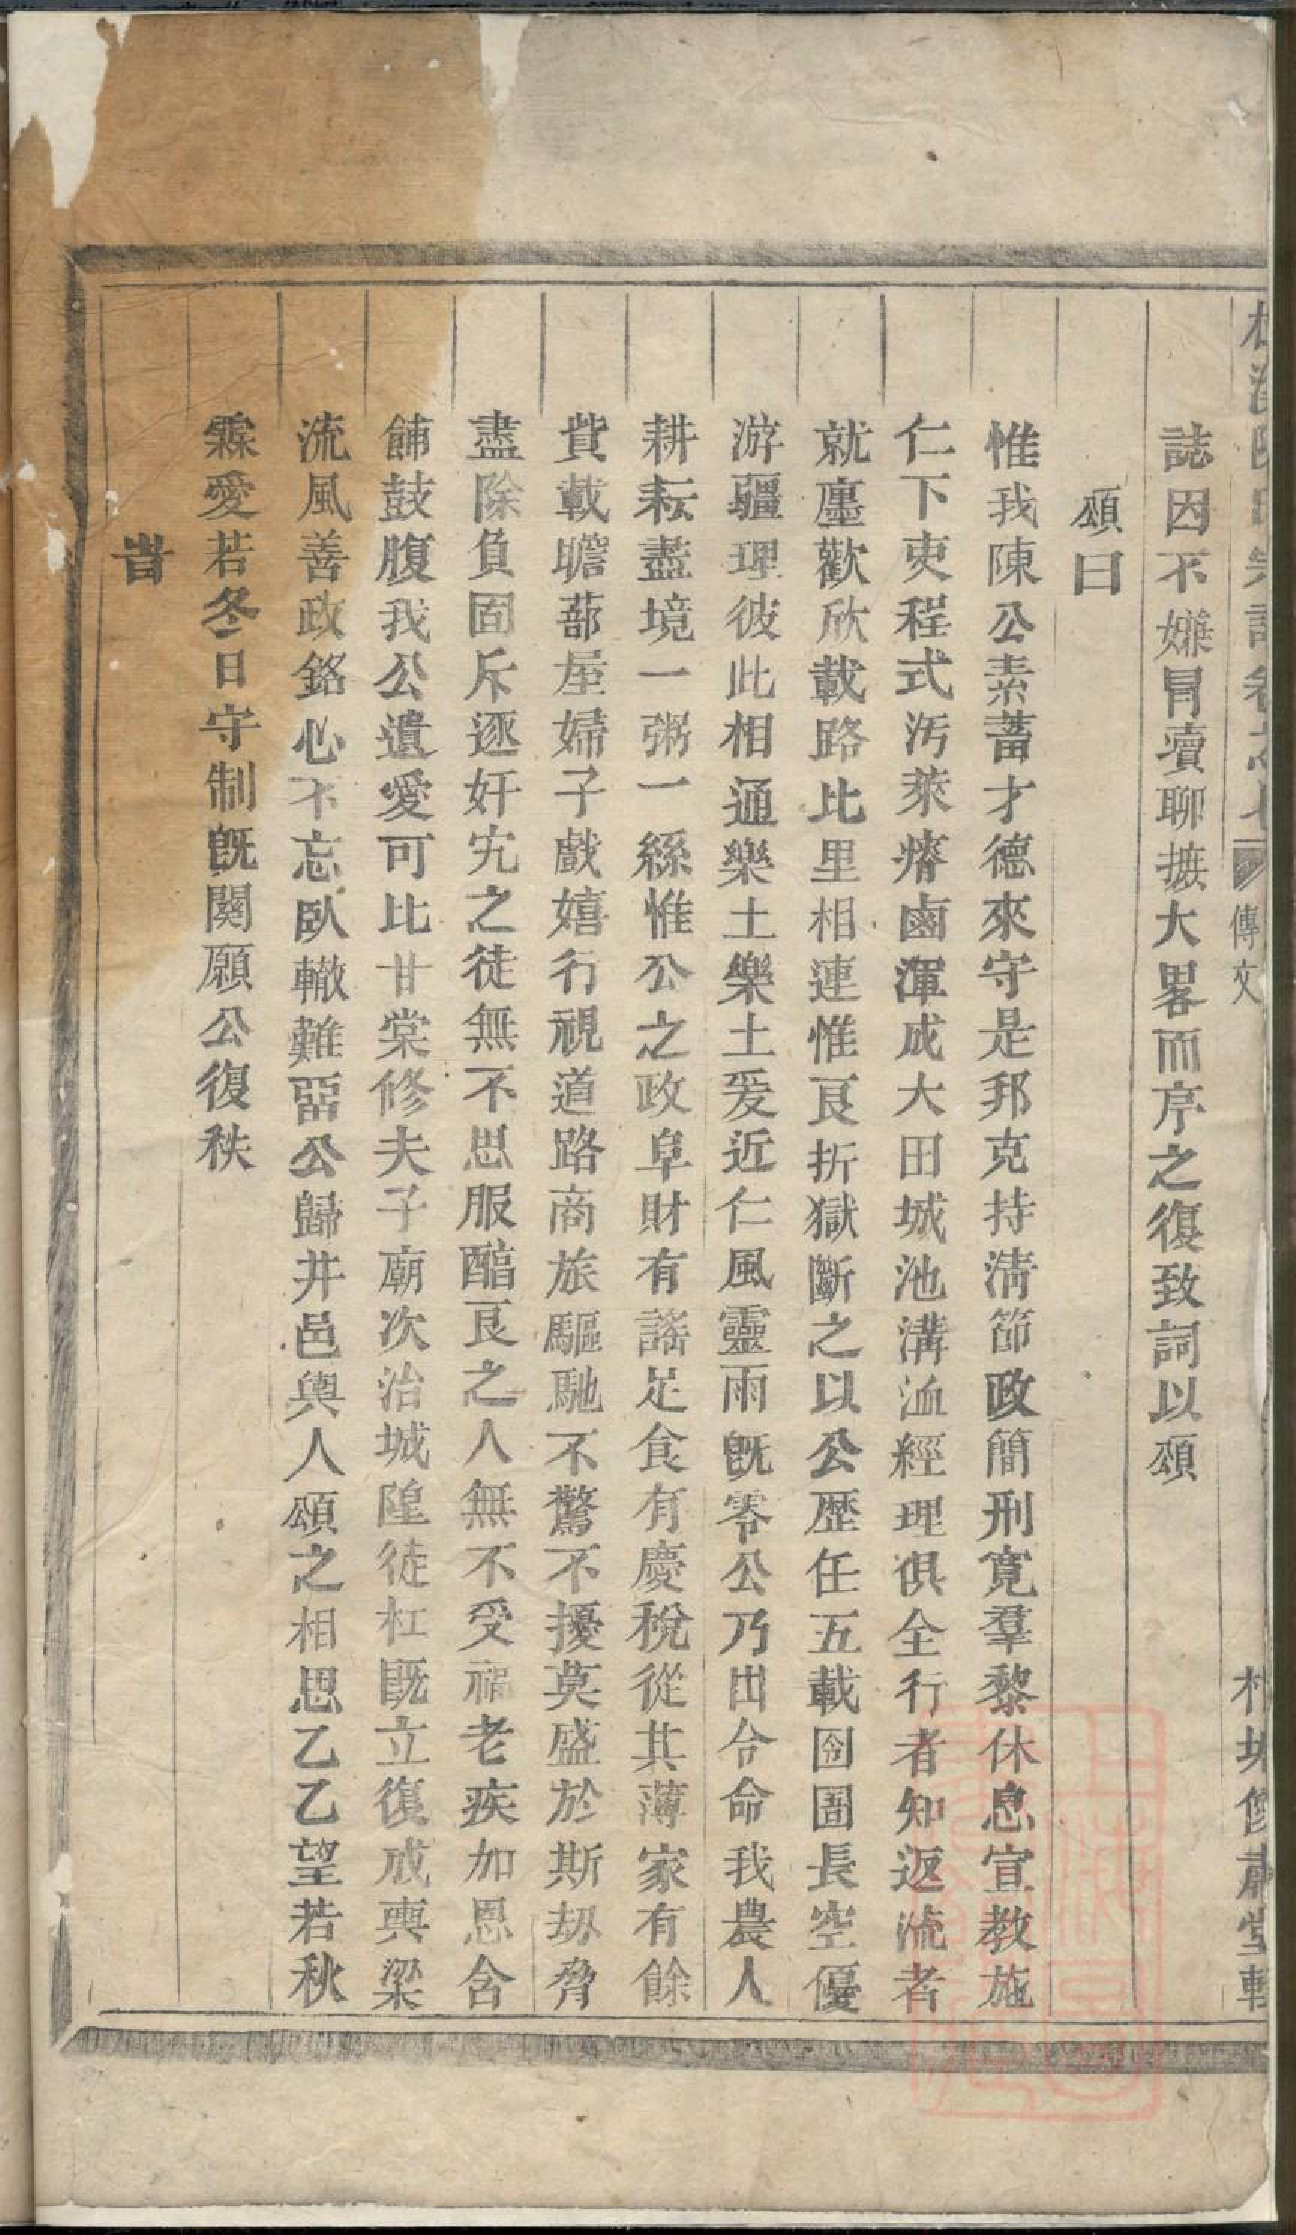 誌因不嫌冒瀆聊摭大畧而序之復致詞以頌
頌曰
惟我陳公素蓄才德來守是邦克持淸節政簡刑寛羣黎休息宣教施
仁下吏程式汚萊瘠鹵渾成大田城池溝洫經理俱全行者知返流者
就廛歡欣載路比里相連惟良折獄斷之以公歷任五載囹圄長空優
游疆理彼此相通樂土樂土爰近仁風靈雨旣零公乃出令命我農人
耕耘盡境一粥一絲惟公之政阜財有謠足食有慶稅從其薄家有餘
貲載瞻蔀屋婦子戲嬉行視道路商旅驅馳不驚不擾莫盛於斯刼脅
盡除負固斥逐奸宄之徒無不思服醕良之人無不受福老疾加恩含
餔鼓腹我公遺愛可比甘棠修夫子廟次治城隍徒杠旣立復成輿梁
流風善政銘心不忘臥轍難畱公歸井邑輿人頌之相思乙乙望若秋
霖愛若冬日守制旣闋願公復秩
旹
傳文